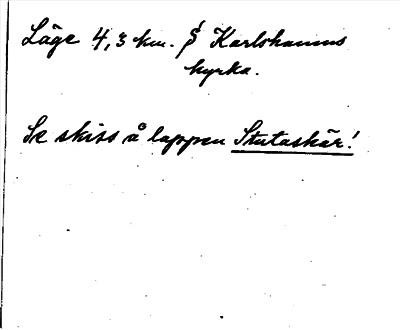 Läge 4,3 km. S Karlshamns
kyrka.
Se skiss å lappen Stutaskär!